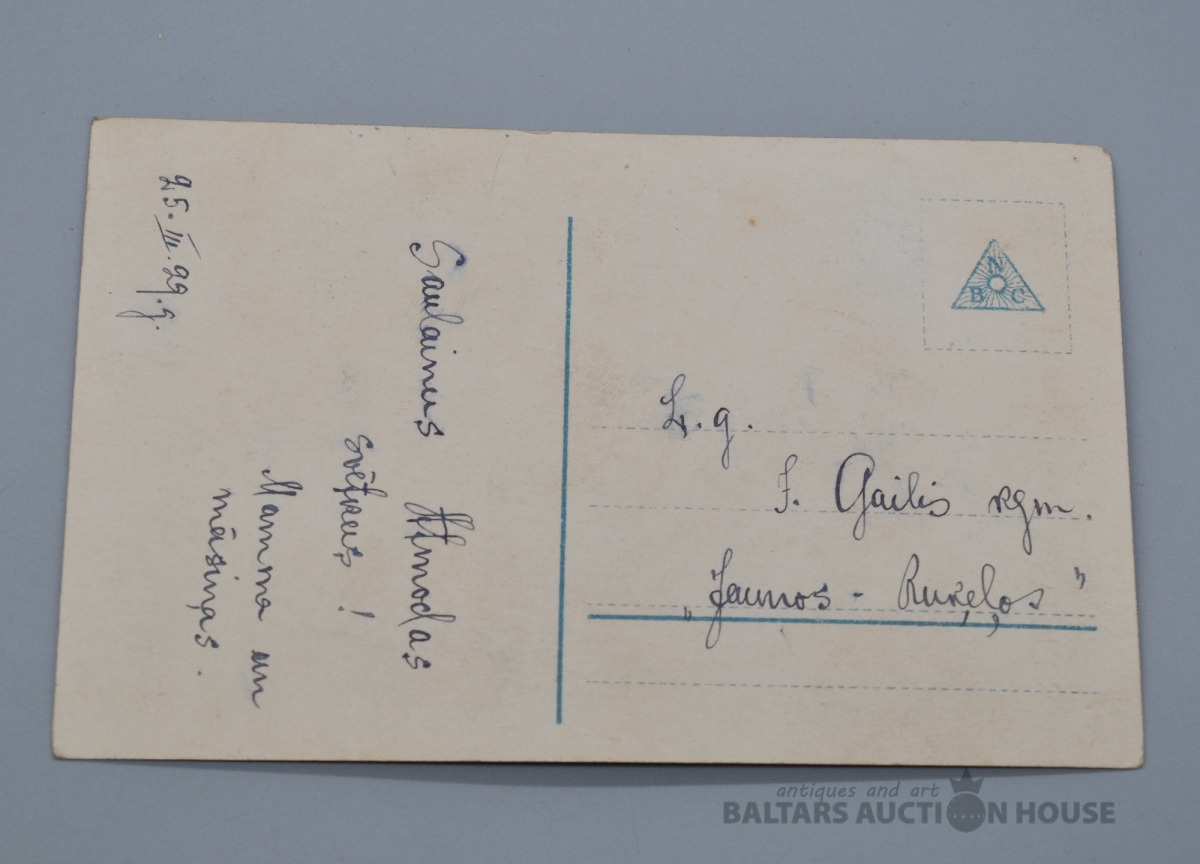 25. III. 29. g.
Saulainus Atmodas
svētkus!
Mamma un
māsiņas.
N
B C
L. g.
J. Gailis kgm.
"Jaunos - Ruķeļos"
antiques and art
BALTARS AUCTION HOUSE